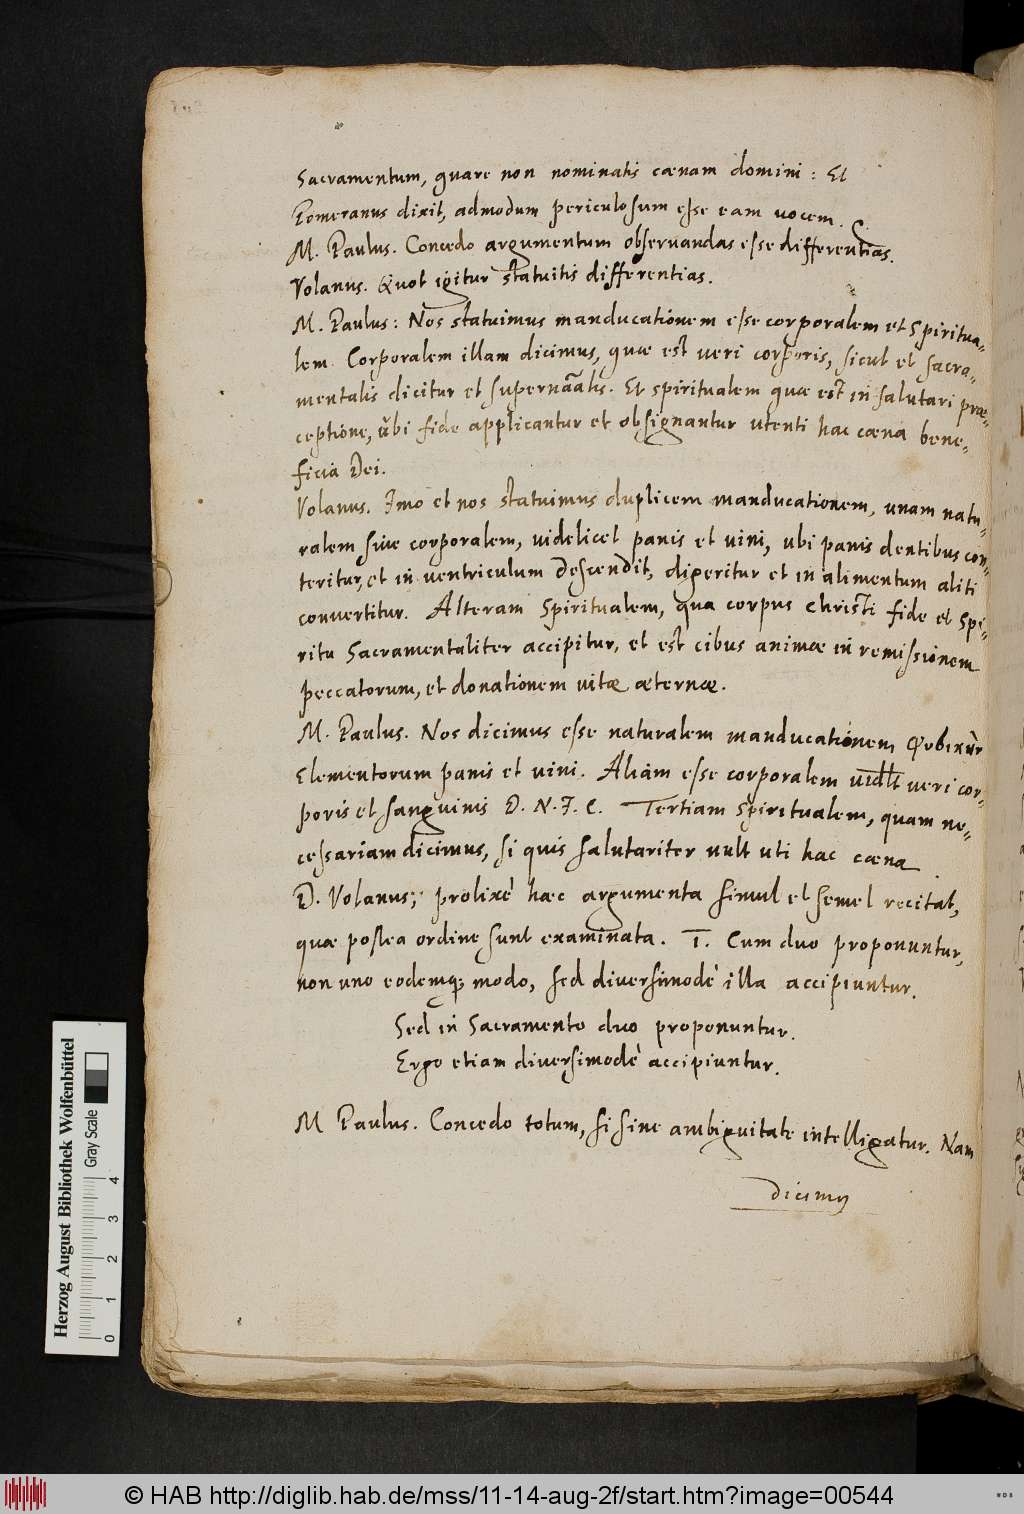 Sacramentum, quare non nominatis cænam domini: Et
Pomeranus dixit, admodum periculosum esse eam vocem.
M. Paulus. Concedo argumentum observandas esse differentias.
Volanus. Quot igitur statuitis differentias.
M. Paulus: Nos statuimus manducationem esse corporalem et Spiritua=
lem. Corporalem illam dicimus, quæ est veri corporis, sicut et sacra=
mentalis dicitur et supernaãlis. Et spiritualem quæ est in salutari præ=
ceptione, ubi fide applicantur et obsignantur utenti hac cæna bene=
ficia Dei.
Volanus. Imo et nos statuimus duplicem manducationem, unam natu=
ralem sive corporalem, videlicet panis et vini, ubi panis dentibus con=
teritur, et in ventriculum descendit, digeritur et in alimentum aliti
convertitur. Alteram Spiritualem, qua corpus Christi fide et Spi=
ritu Sacramentaliter accipitur, et est cibus animæ in remissionem
peccatorum, et donationem vitæ æternæ.
M. Paulus. Nos dicimus esse naturalem manducationem
Elementorum panis et vini. Aliam esse corporalem vidlt veri cor=
poris et sanguinis D. N. J. C. Tertiam Spiritualem, quam ne=
cessariam dicimus, si quis salutariter vult uti hac cæna
D. Volanus; prolixè hæc argumenta simul et semel recitat,
quæ postea ordine sunt examinata. I. Cum duo proponuntur,
non uno eodemq; modo, sed diversimodè illa accipiuntur.
Sed in Sacramento duo proponuntur.
Ergo etiam diversimodè accipiuntur.
M Paulus. Concedo totum, si sine ambiguitate intelligatur. Nam
dicimus
Herzog August Bibliothek Wolfenbüttel
Gray Scale
0 1 2 3 4
© HAB http://diglib.hab.de/mss/11-14-aug-2f/start.htm?image=00544